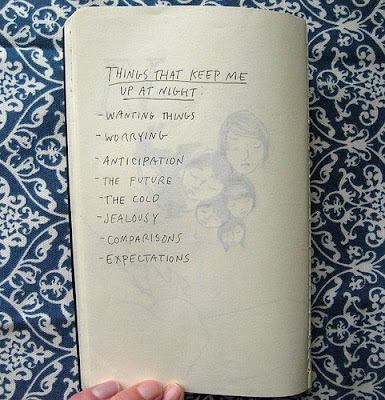 THINGS THAT KEEP ME
UP AT NIGHT:
- WANTING THINGS
- WORRYING
- ANTICIPATION
- THE FUTURE
- THE COLD
- JEALOUSY
- COMPARISONS
- EXPECTATIONS